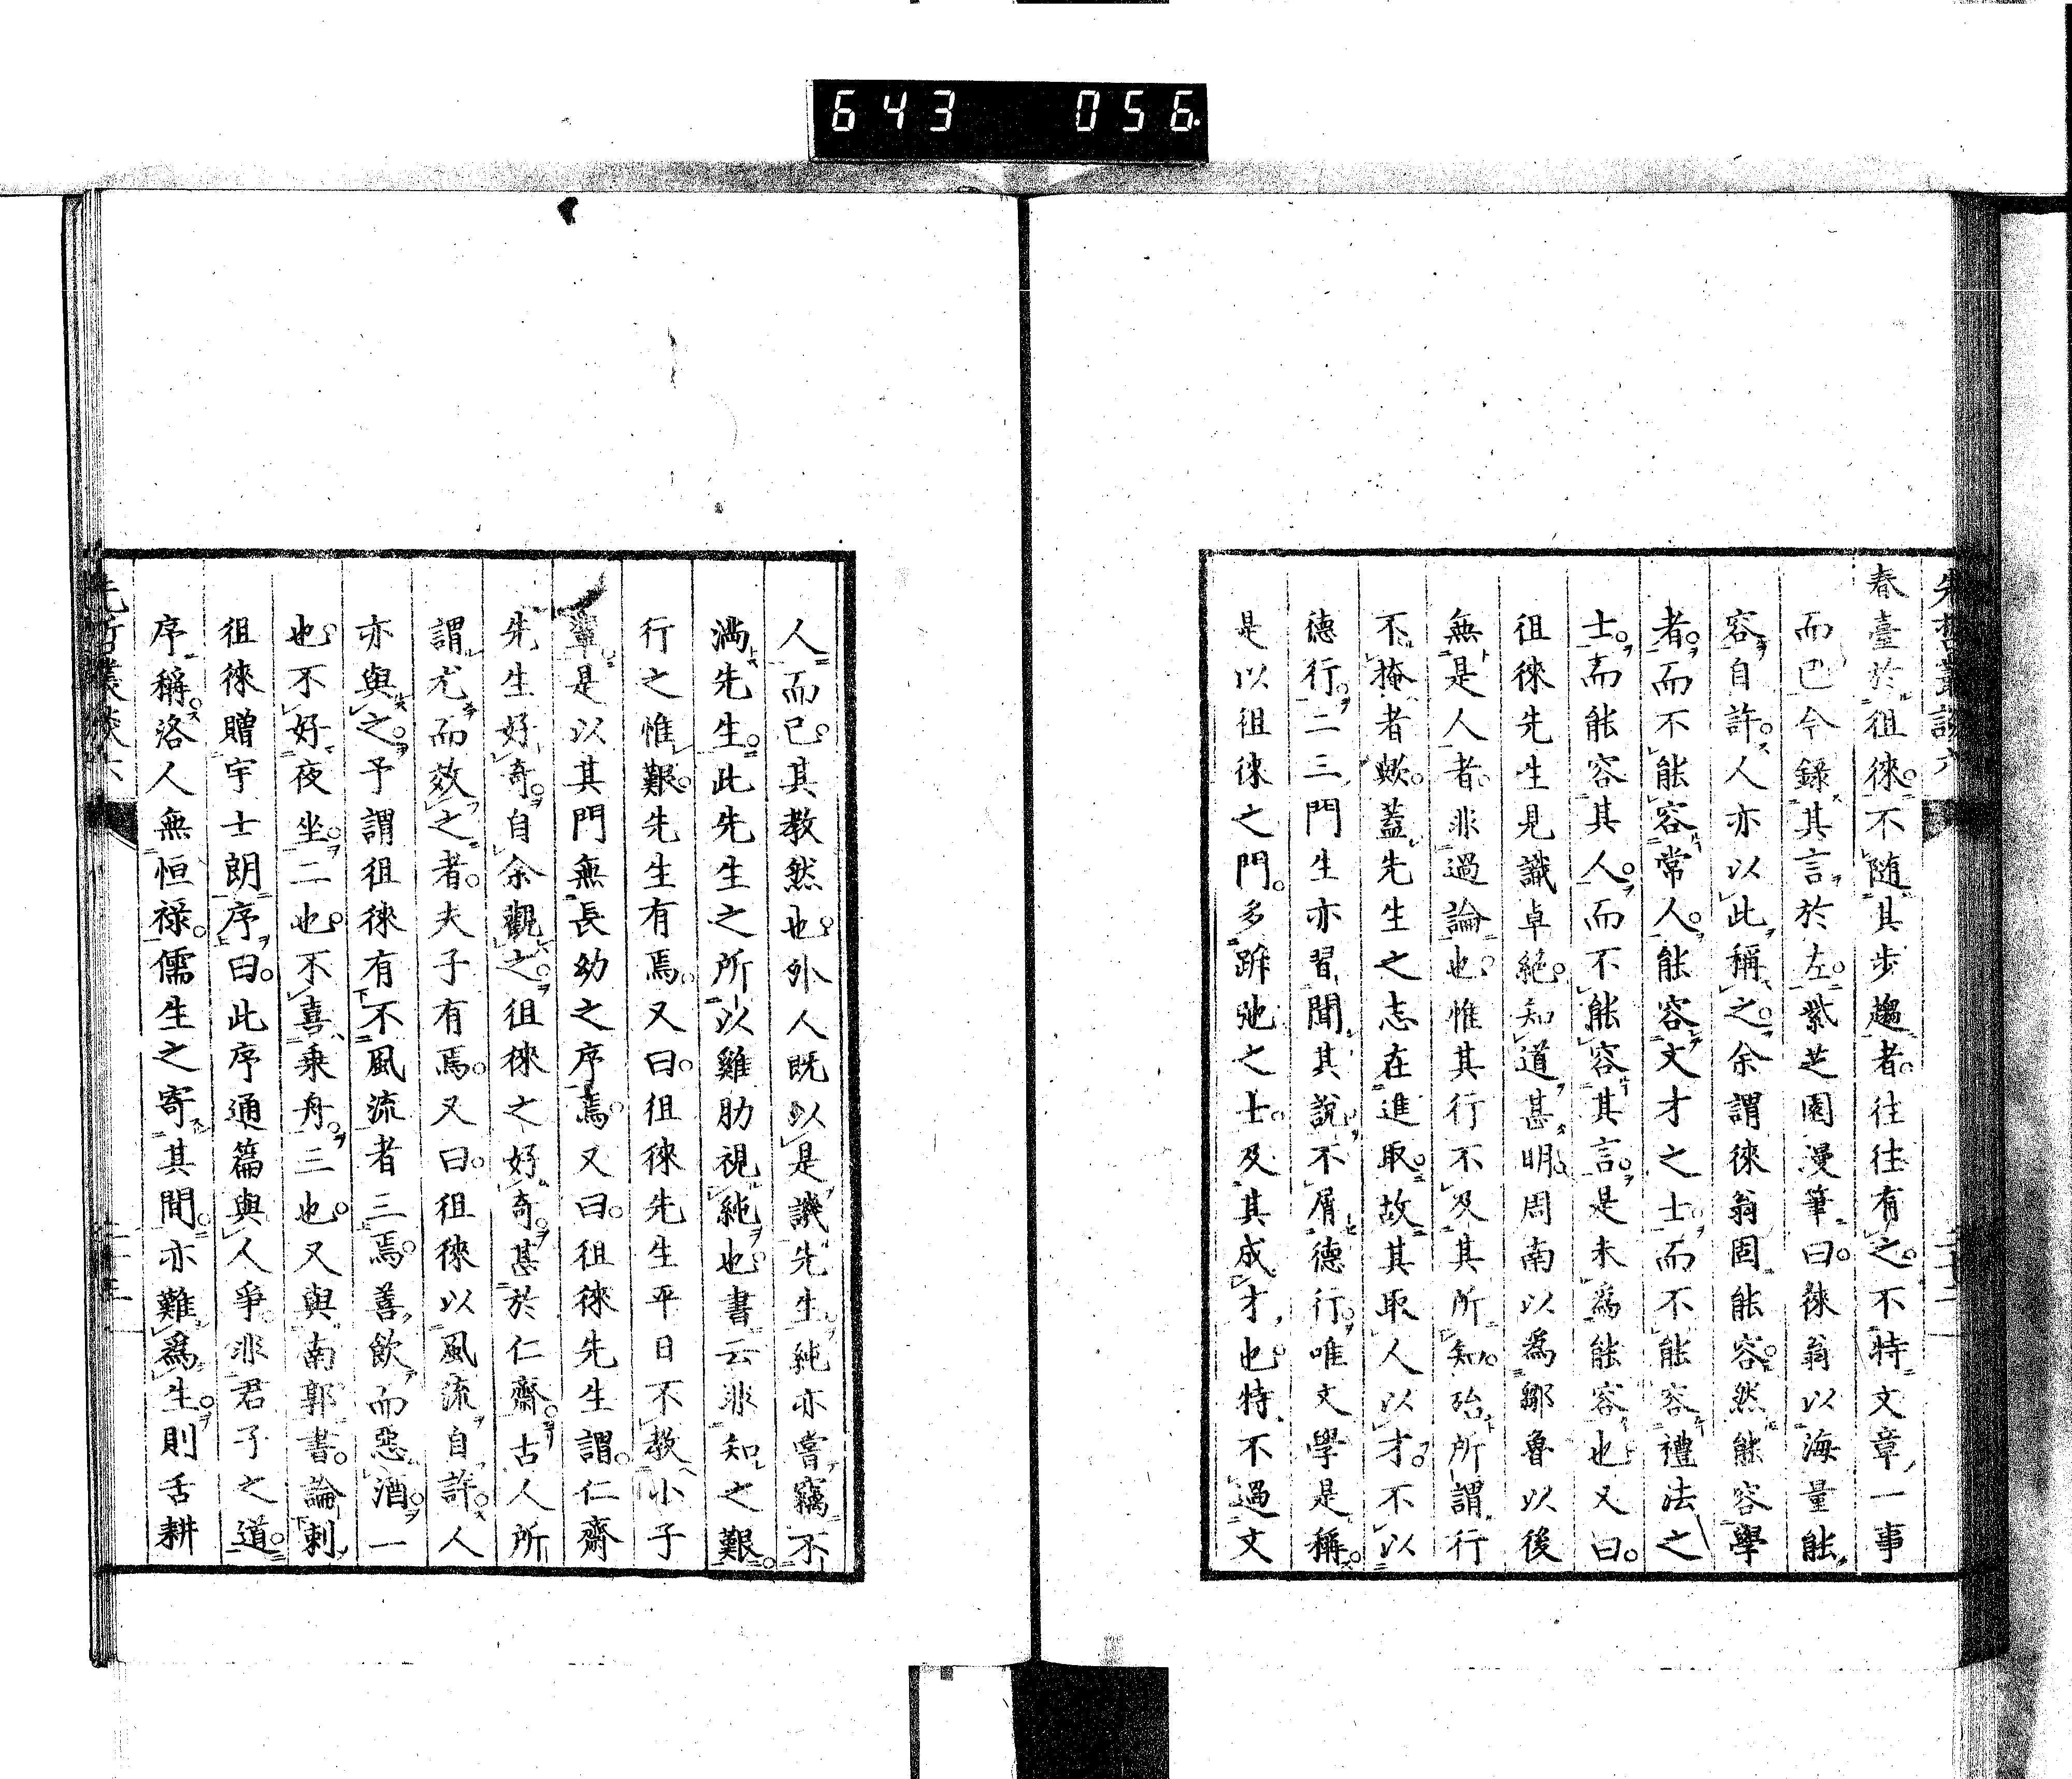 643 056
先哲叢談六
春臺於徂徠不随其步趨者往往有之不特文章一事
而已今錄其言於左紫芝園漫筆曰徠翁以海量能
容自許人亦以此稱之余謂徠翁固能容然能容學
者而不能容常人能容文才之士而不能容禮法之
士而能容其人而不能容其言是未爲能容也又曰
徂徠先生見識卓絕知道甚明周南以爲鄒魯以後
無是人者非過論也惟其行不及其所知殆所謂行
不掩者歟蓋先生之志在進取故其取人以才不以
德行二三門生亦習聞其說不屑德行唯文學是稱
是以徂徠之門多跅弛之士及其成才也特不過文
人而已其教然也外人既以是譏先生純亦嘗竊不
滿先生此先生之所以雞肋視純也書云非知之艱
行之惟艱先生有焉又曰徂徠先生平日不教小子
輩是以其門無長幼之序焉又曰徂徠先生謂仁齋
先生好奇自余觀之徂徠之好奇甚於仁齋古人所
謂尤而效之者夫子有焉又曰徂徠以風流自許人
亦與之予謂徂徠有不風流者三焉善飲而惡酒一
也不好夜坐二也不喜乗舟三也又與南郭書論刺
徂徠贈宇士朗序曰此序通篇與人爭非君子之道
序稱洛人無恒祿儒生之寄其間亦難爲生則舌耕
先哲叢談六